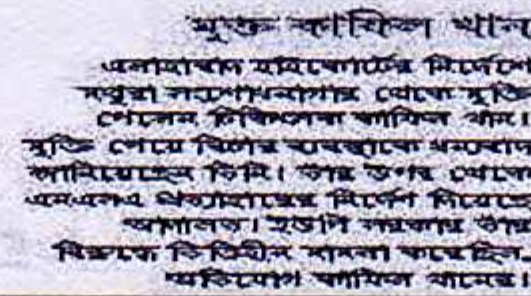 মুক্ত কাফিল খান
এলাহাবাদ হাইকোর্টের নির্দেশে
মথুরা সংশোধনাগার থেকে মুক্তি
পেলেন চিকিৎসক কাফিল খান।
মুক্তি পেয়ে বিচার ব্যবস্থাকে ধন্যবাদ
জানিয়েছেন তিনি। তাঁর উপর থেকে
এনএসএ প্রত্যাহারের নির্দেশ দিয়েছে
আদালত। ইউপি সরকার তাঁর
বিরুদ্ধে ভিত্তিহীন মামলা করেছিল,
অভিযোগ কাফিল খানের।